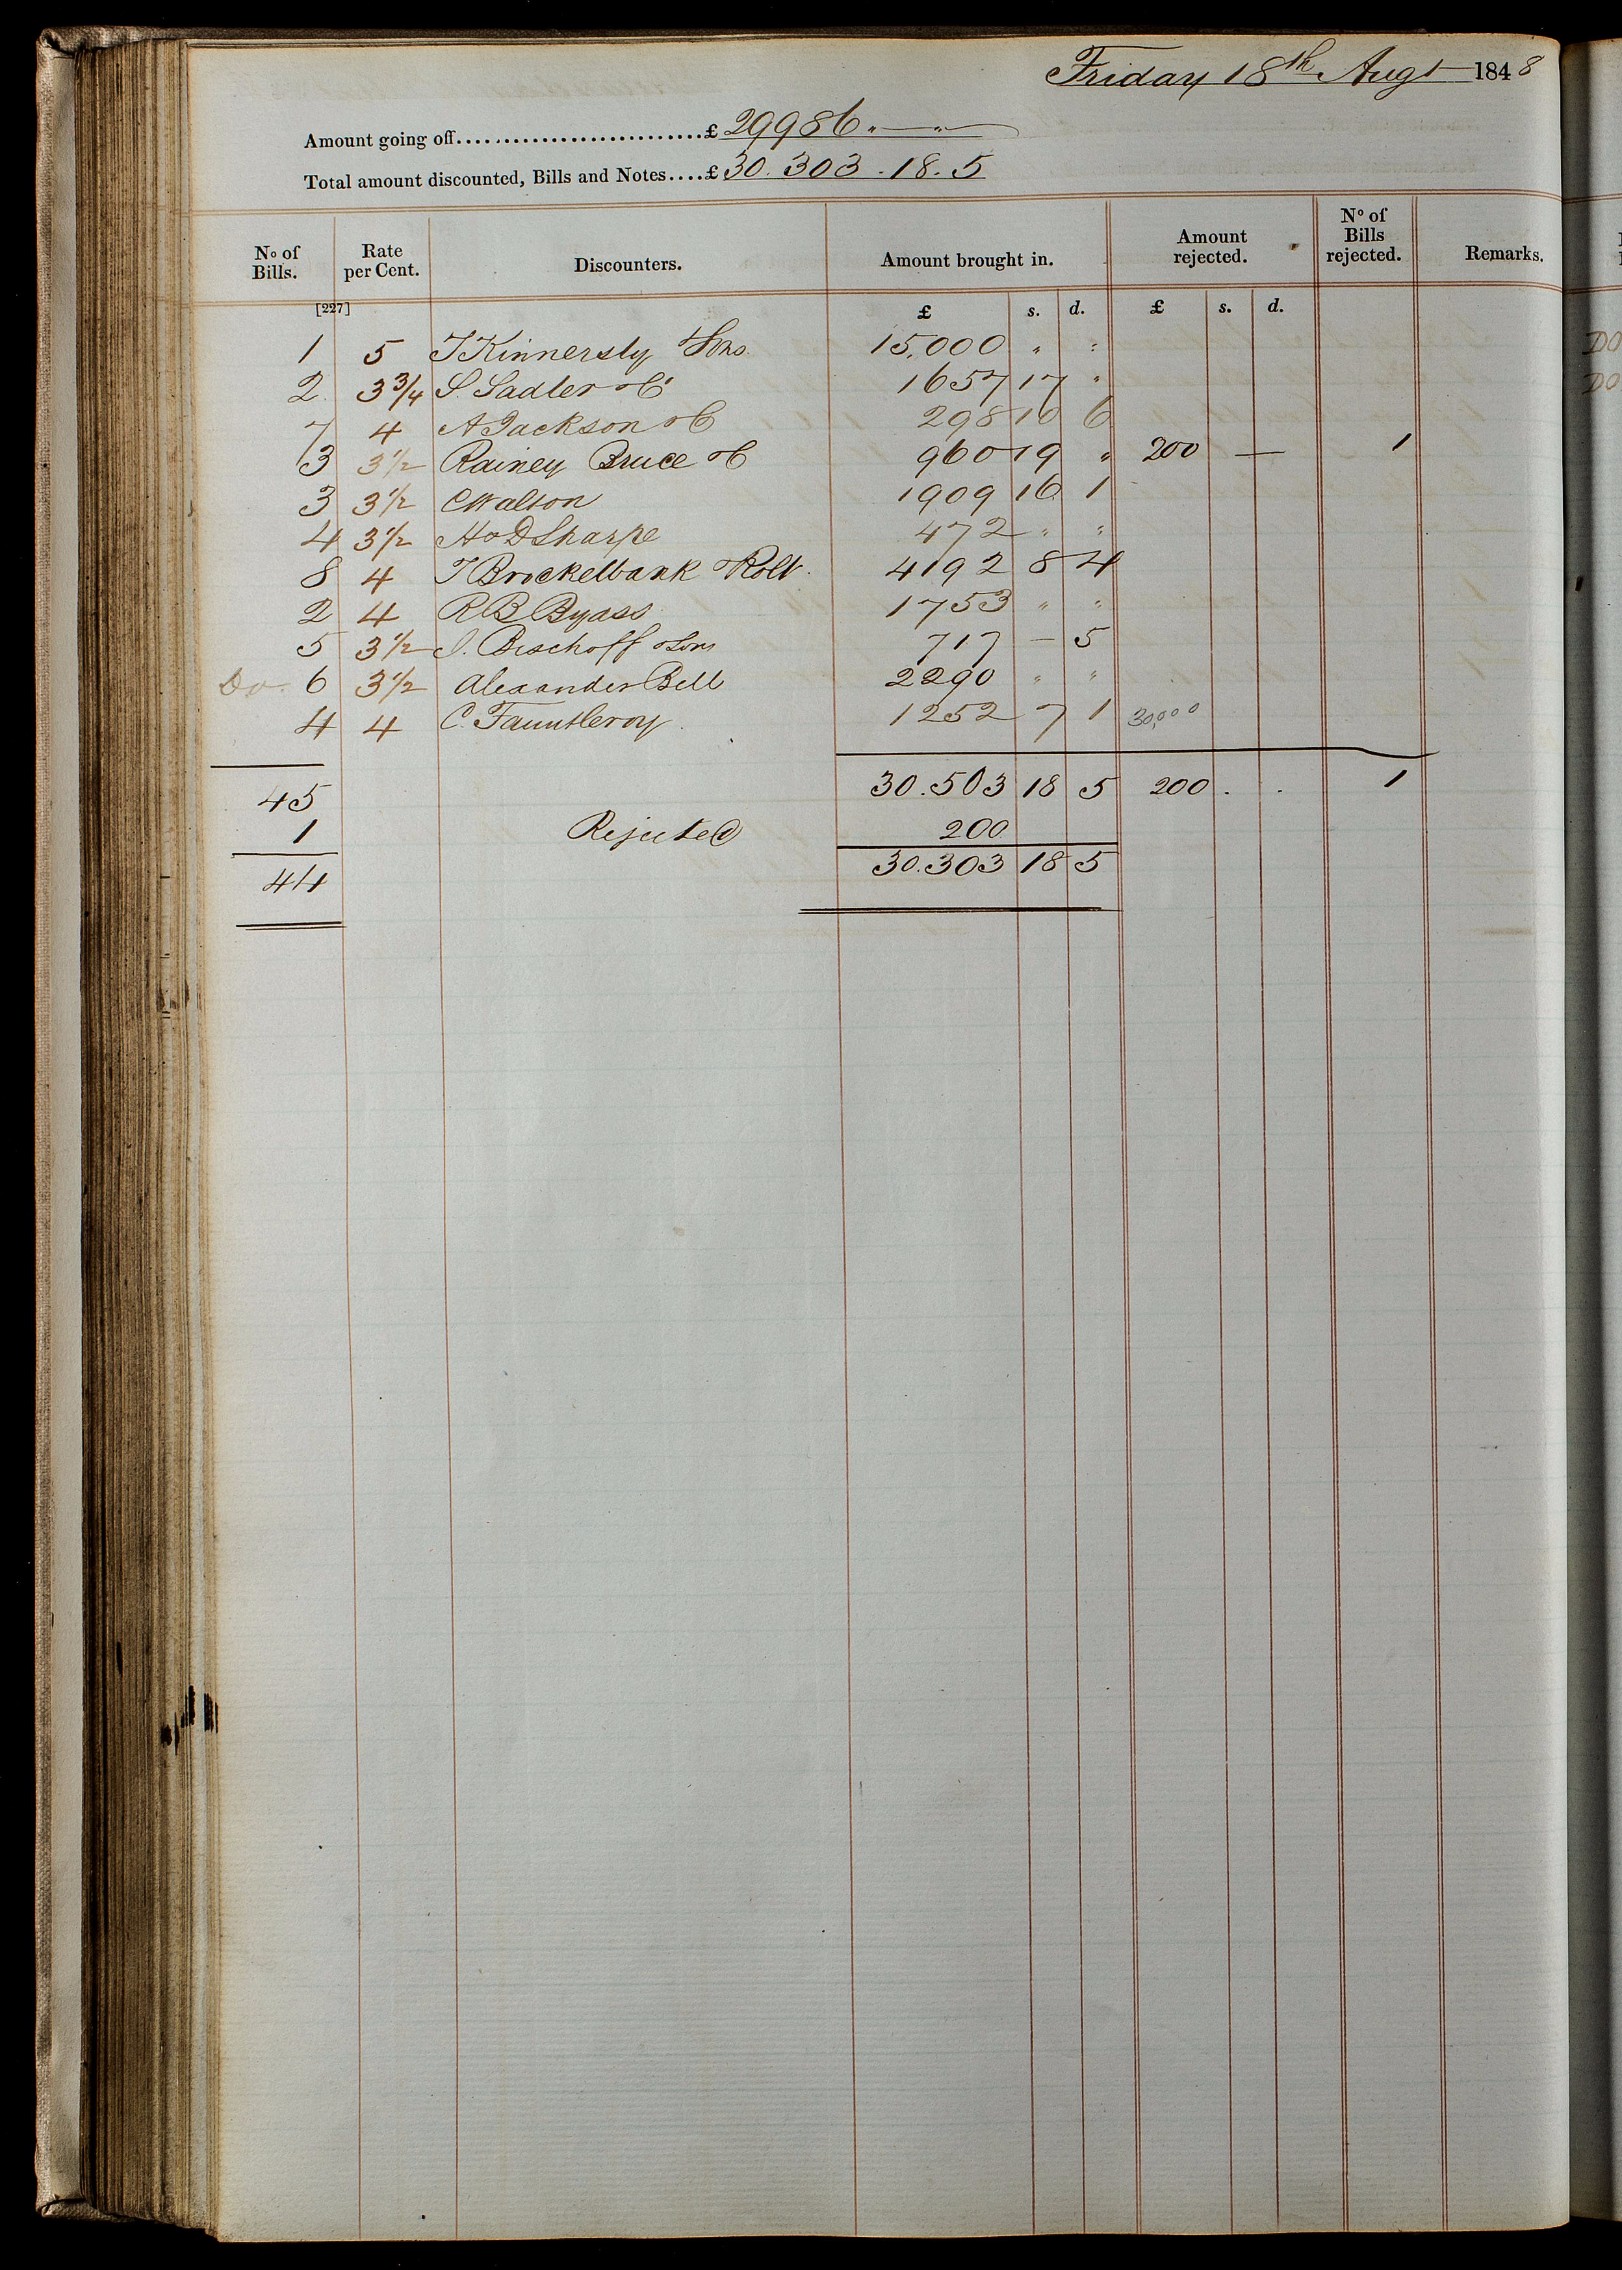 Friday 18th Augt 1848
Amount going off..........................£ 29986 " — "
Total amount discounted, Bills and Notes....£ 30.303.18.5
No of Bills. Rate per Cent. Discounters. Amount brought in. Amount rejected. No of Bills rejected. Remarks.
[227] £ s. d. £ s. d.
1 5 T Kinnersly & Sons 15,000 " "
2 3 3/4 S. Sadler & Co 1657 17 "
7 4 A Jackson & Co 298 10 6
3 3 1/2 Rainey Bruce & Co 960 19 " 200 — 1
3 3 1/2 C Walton 1909 16 1
4 3 1/2 H & D Sharpe 472 " "
8 4 T Brockelbank & Rolt 4192 8 4
2 4 R B Byass 1753 " "
5 3 1/2 J. Bischoff & Sons 717 — 5
Do. 6 3 1/2 Alexander Bell 2290 " "
4 4 C. Fauntleroy 1252 7 1 30,000
45 30.503 18 5 200 . . 1
1 Rejected 200
44 30.303 18 5
DO
DO